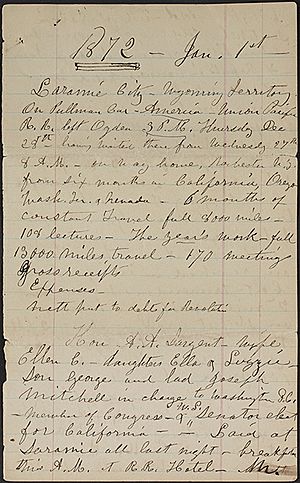 1872 — Jan. 1st —
Laramie City — Wyoming Territory
On Pullman Car — America — Union Pacific
R. R. left Ogden Thursday Dec
28th having waited there from Wednesday 27th
8 A.M. — on way home, Rochester N.Y.
from six months in California, Oregon
Wash. Ter. & Nevada — 6 months of
constant travel full 8000 miles —
108 lectures — The year's work — full
13,000 miles travel — 170 meetings
Gross receipts
Expenses —
nett put to debts for Revolution
Hon A. A. Sargent — wife
Ellen C. — daughters Ella & Lizzie
Son George and lad Joseph
Mitchell in charge to Washington D.C.
member of Congress — & U.S. Senator elect
for California — Laid at
Laramie all last night — breakfast
this A.M. at R.R. Hotel — Mr.